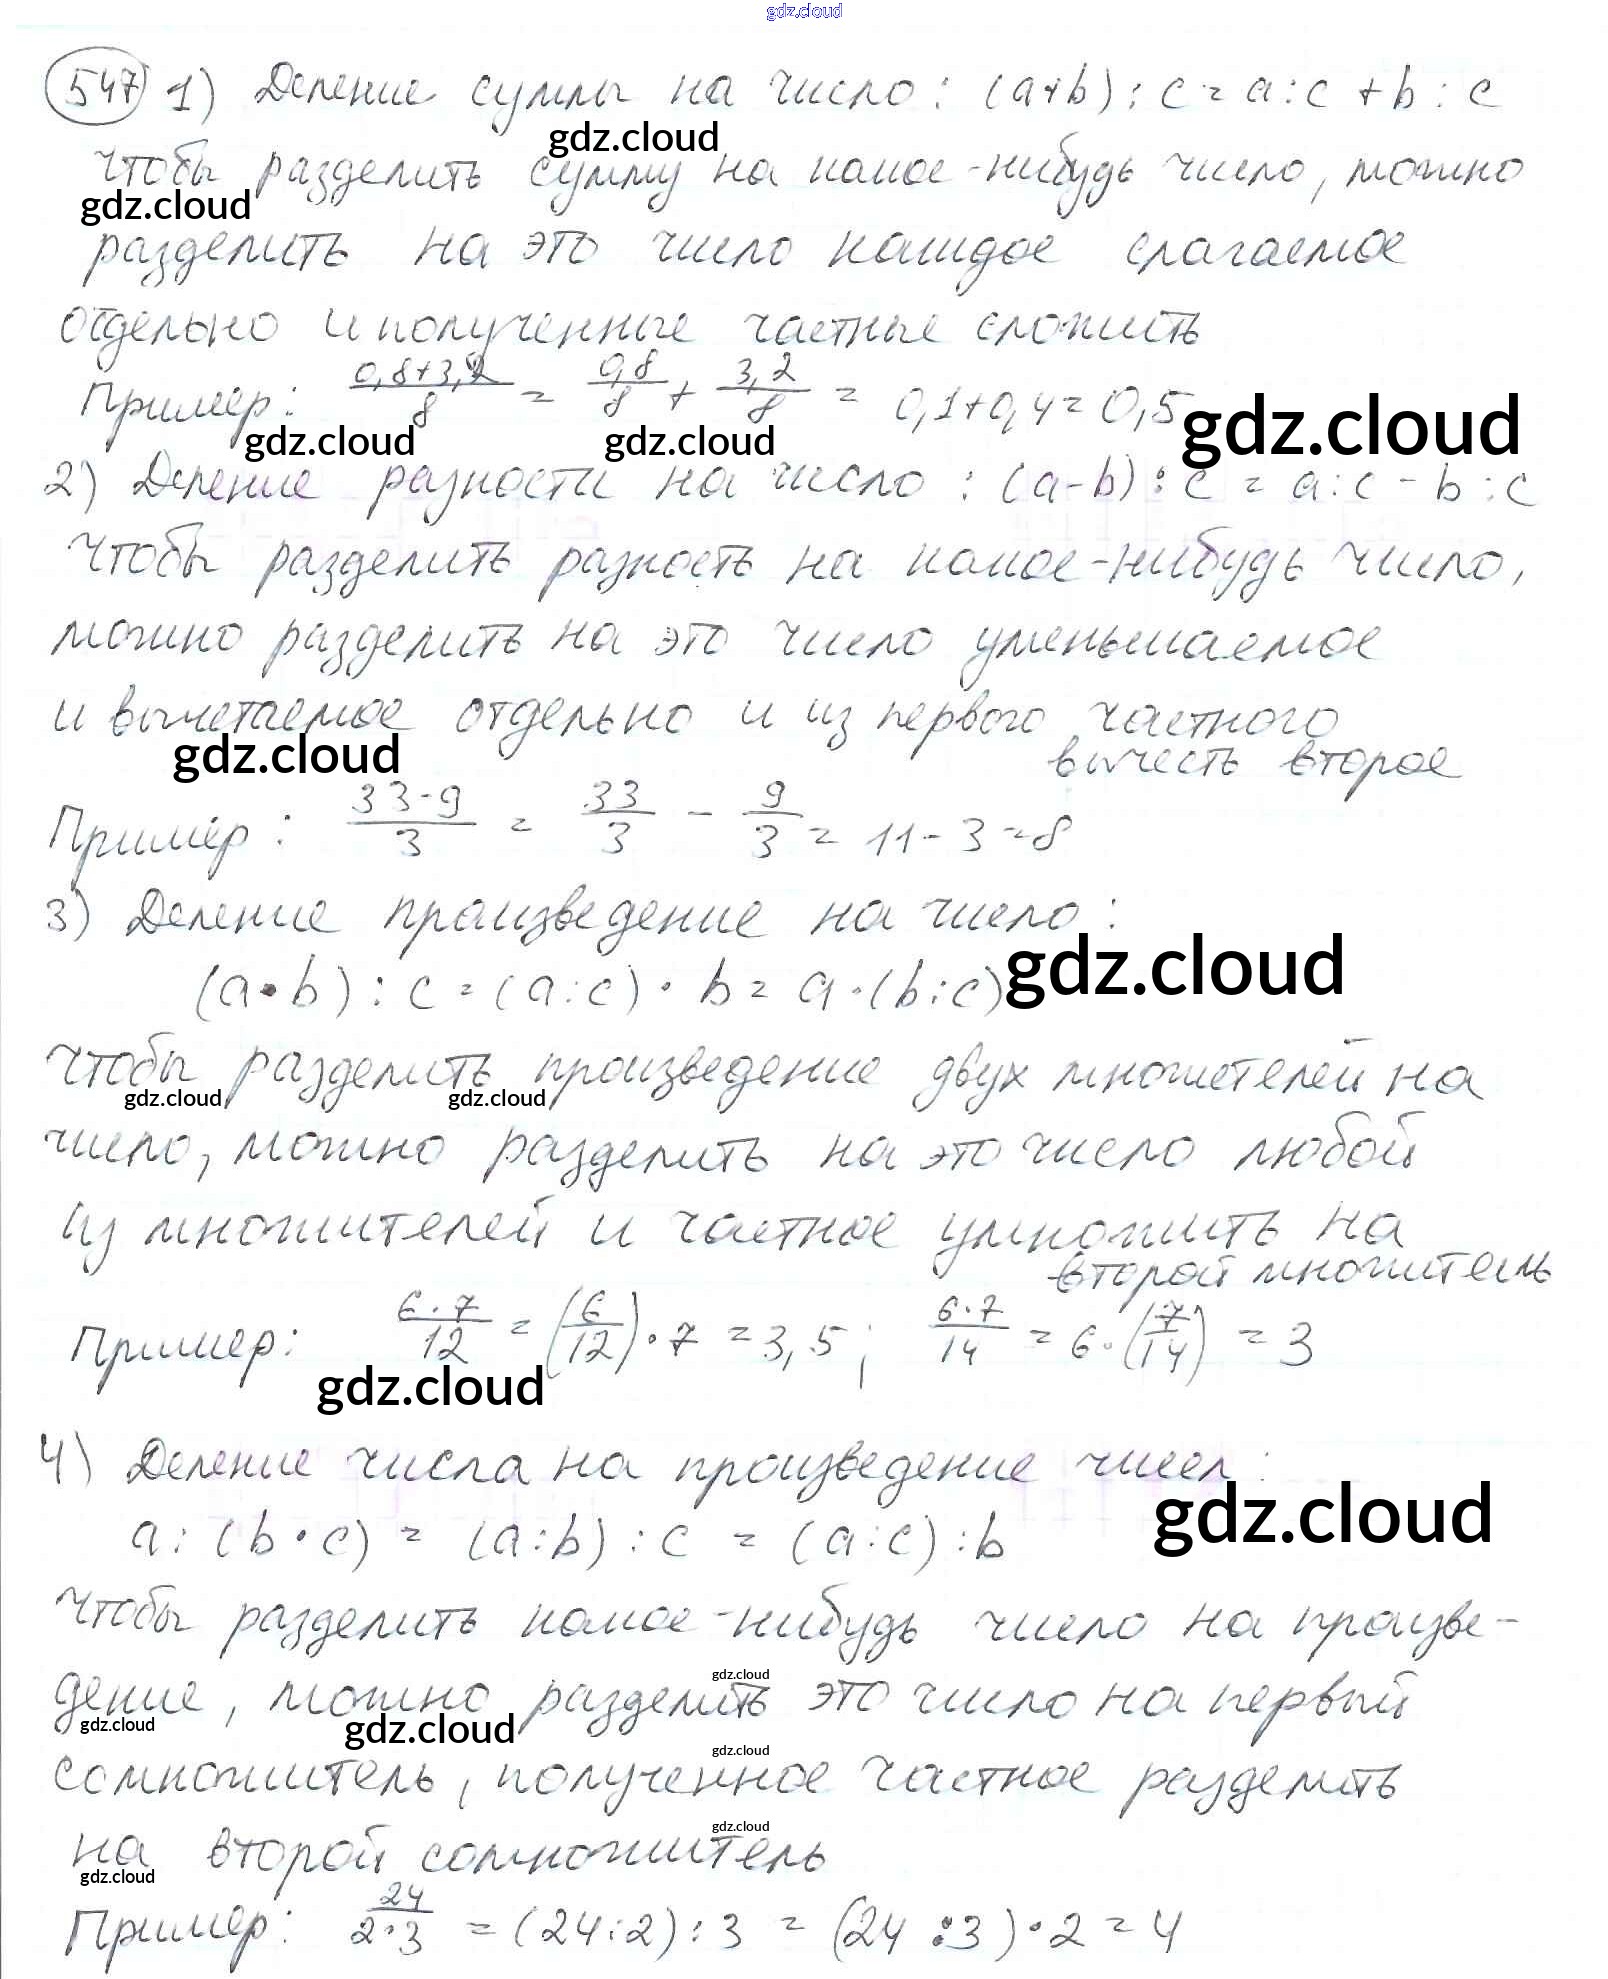 gdz.cloud
547 1) Деление суммы на число: (a+b):c=a:c+b:c
gdz.cloud
Чтобы разделить сумму на какое-нибудь число, можно
gdz.cloud
разделить на это число каждое слагаемое
отдельно и полученные частные сложить
Пример: (0,8+3,2)/8 = 0,8/8 + 3,2/8 = 0,1+0,4=0,5
gdz.cloud
gdz.cloud gdz.cloud
2) Деление разности на число: (a-b):c = a:c - b:c
Чтобы разделить разность на какое-нибудь число,
можно разделить на это число уменьшаемое
и вычетаемое отдельно и из первого частного
вычесть второе
gdz.cloud
Пример: (33-9)/3 = 33/3 - 9/3 = 11-3=8
3) Деление произведение на число:
(a·b):c=(a:c)·b=a·(b:c)
gdz.cloud
Чтобы разделить произведение двух множетелей на
gdz.cloud gdz.cloud
число, можно разделить на это число любой
из множителей и частное умножить на
второй множитель
Пример: (6·7)/12 = (6/12)·7=3,5; (6·7)/14 = 6·(7/14) = 3
gdz.cloud
4) Деление числа на произведение чисел:
gdz.cloud
a:(b·c) = (a:b):c = (a:c):b
Чтобы разделить какое-нибудь число на произве-
gdz.cloud
дение, можно разделить это число на первый
gdz.cloud gdz.cloud
gdz.cloud
сомножитель, полученное частное разделить
gdz.cloud
на второй сомножитель
gdz.cloud
Пример: 24/(2·3) = (24:2):3 = (24:3)·2=4